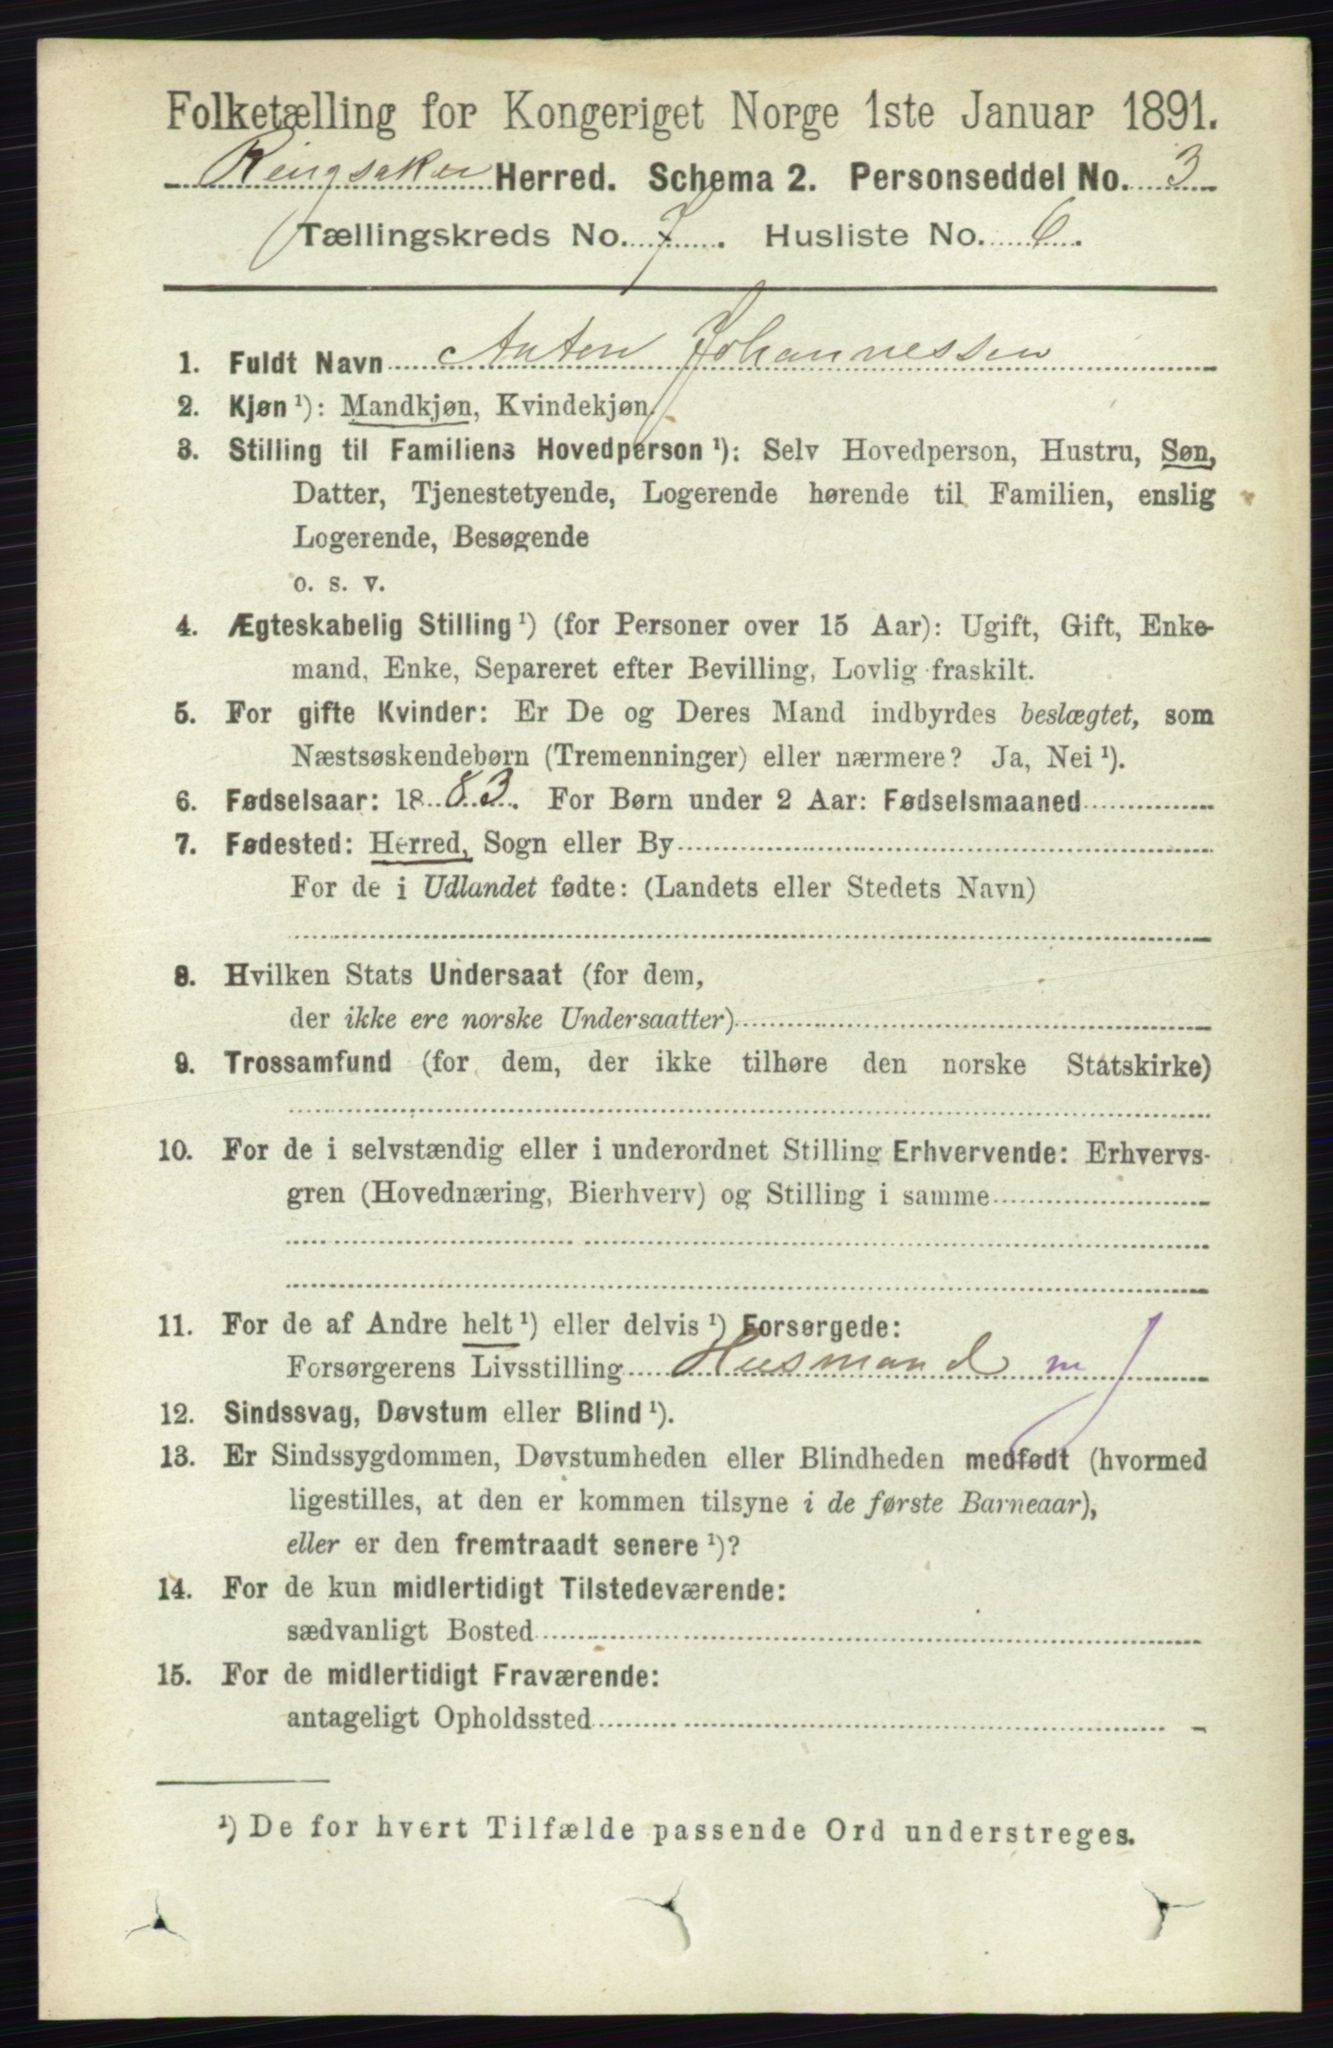 Folketælling for Kongeriget Norge 1ste Januar 1891.
Ringsaker Herred. Schema 2. Personseddel No. 3
Tællingskreds No. 7. Husliste No. 6.
1. Fuldt Navn Anton Johannessen
2. Kjøn ¹): Mandkjøn, Kvindekjøn.
3. Stilling til Familiens Hovedperson ¹): Selv Hovedperson, Hustru, Søn,
Datter, Tjenestetyende, Logerende hørende til Familien, enslig
Logerende, Besøgende
o. s. v.
4. Ægteskabelig Stilling ¹) (for Personer over 15 Aar): Ugift, Gift, Enke-
mand, Enke, Separeret efter Bevilling, Lovlig fraskilt.
5. For gifte Kvinder: Er De og Deres Mand indbyrdes beslægtet, som
Næstsøskendebørn (Tremenninger) eller nærmere? Ja, Nei ¹).
6. Fødselsaar: 1883. For Børn under 2 Aar: Fødselsmaaned
7. Fødested: Herred, Sogn eller By
For de i Udlandet fødte: (Landets eller Stedets Navn)
8. Hvilken Stats Undersaat (for dem,
der ikke ere norske Undersaatter)
9. Trossamfund (for dem, der ikke tilhøre den norske Statskirke)
10. For de i selvstændig eller i underordnet Stilling Erhvervende: Erhvervs-
gren (Hovednæring, Bierhverv) og Stilling i samme
11. For de af Andre helt ¹) eller delvis ¹) Forsørgede:
Forsørgerens Livsstilling Husmand m J
12. Sindssvag, Døvstum eller Blind ¹).
13. Er Sindssygdommen, Døvstumheden eller Blindheden medfødt (hvormed
ligestilles, at den er kommen tilsyne i de første Barneaar),
eller er den fremtraadt senere ¹)?
14. For de kun midlertidigt Tilstedeværende:
sædvanligt Bosted
15. For de midlertidigt Fraværende:
antageligt Opholdssted
¹) De for hvert Tilfælde passende Ord understreges.